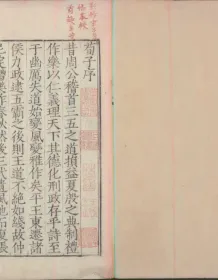 荀子序
昔周公稽古三五之道損益夏殷之典制禮
作樂以仁義理天下其德化刑政存乎詩至
于幽厲失道始變風變雅作矣平王東遷諸
侯力政逮五霸之後則王道不絕如綫故仲
尼定禮樂作春秋然後三代遺風弛而復張